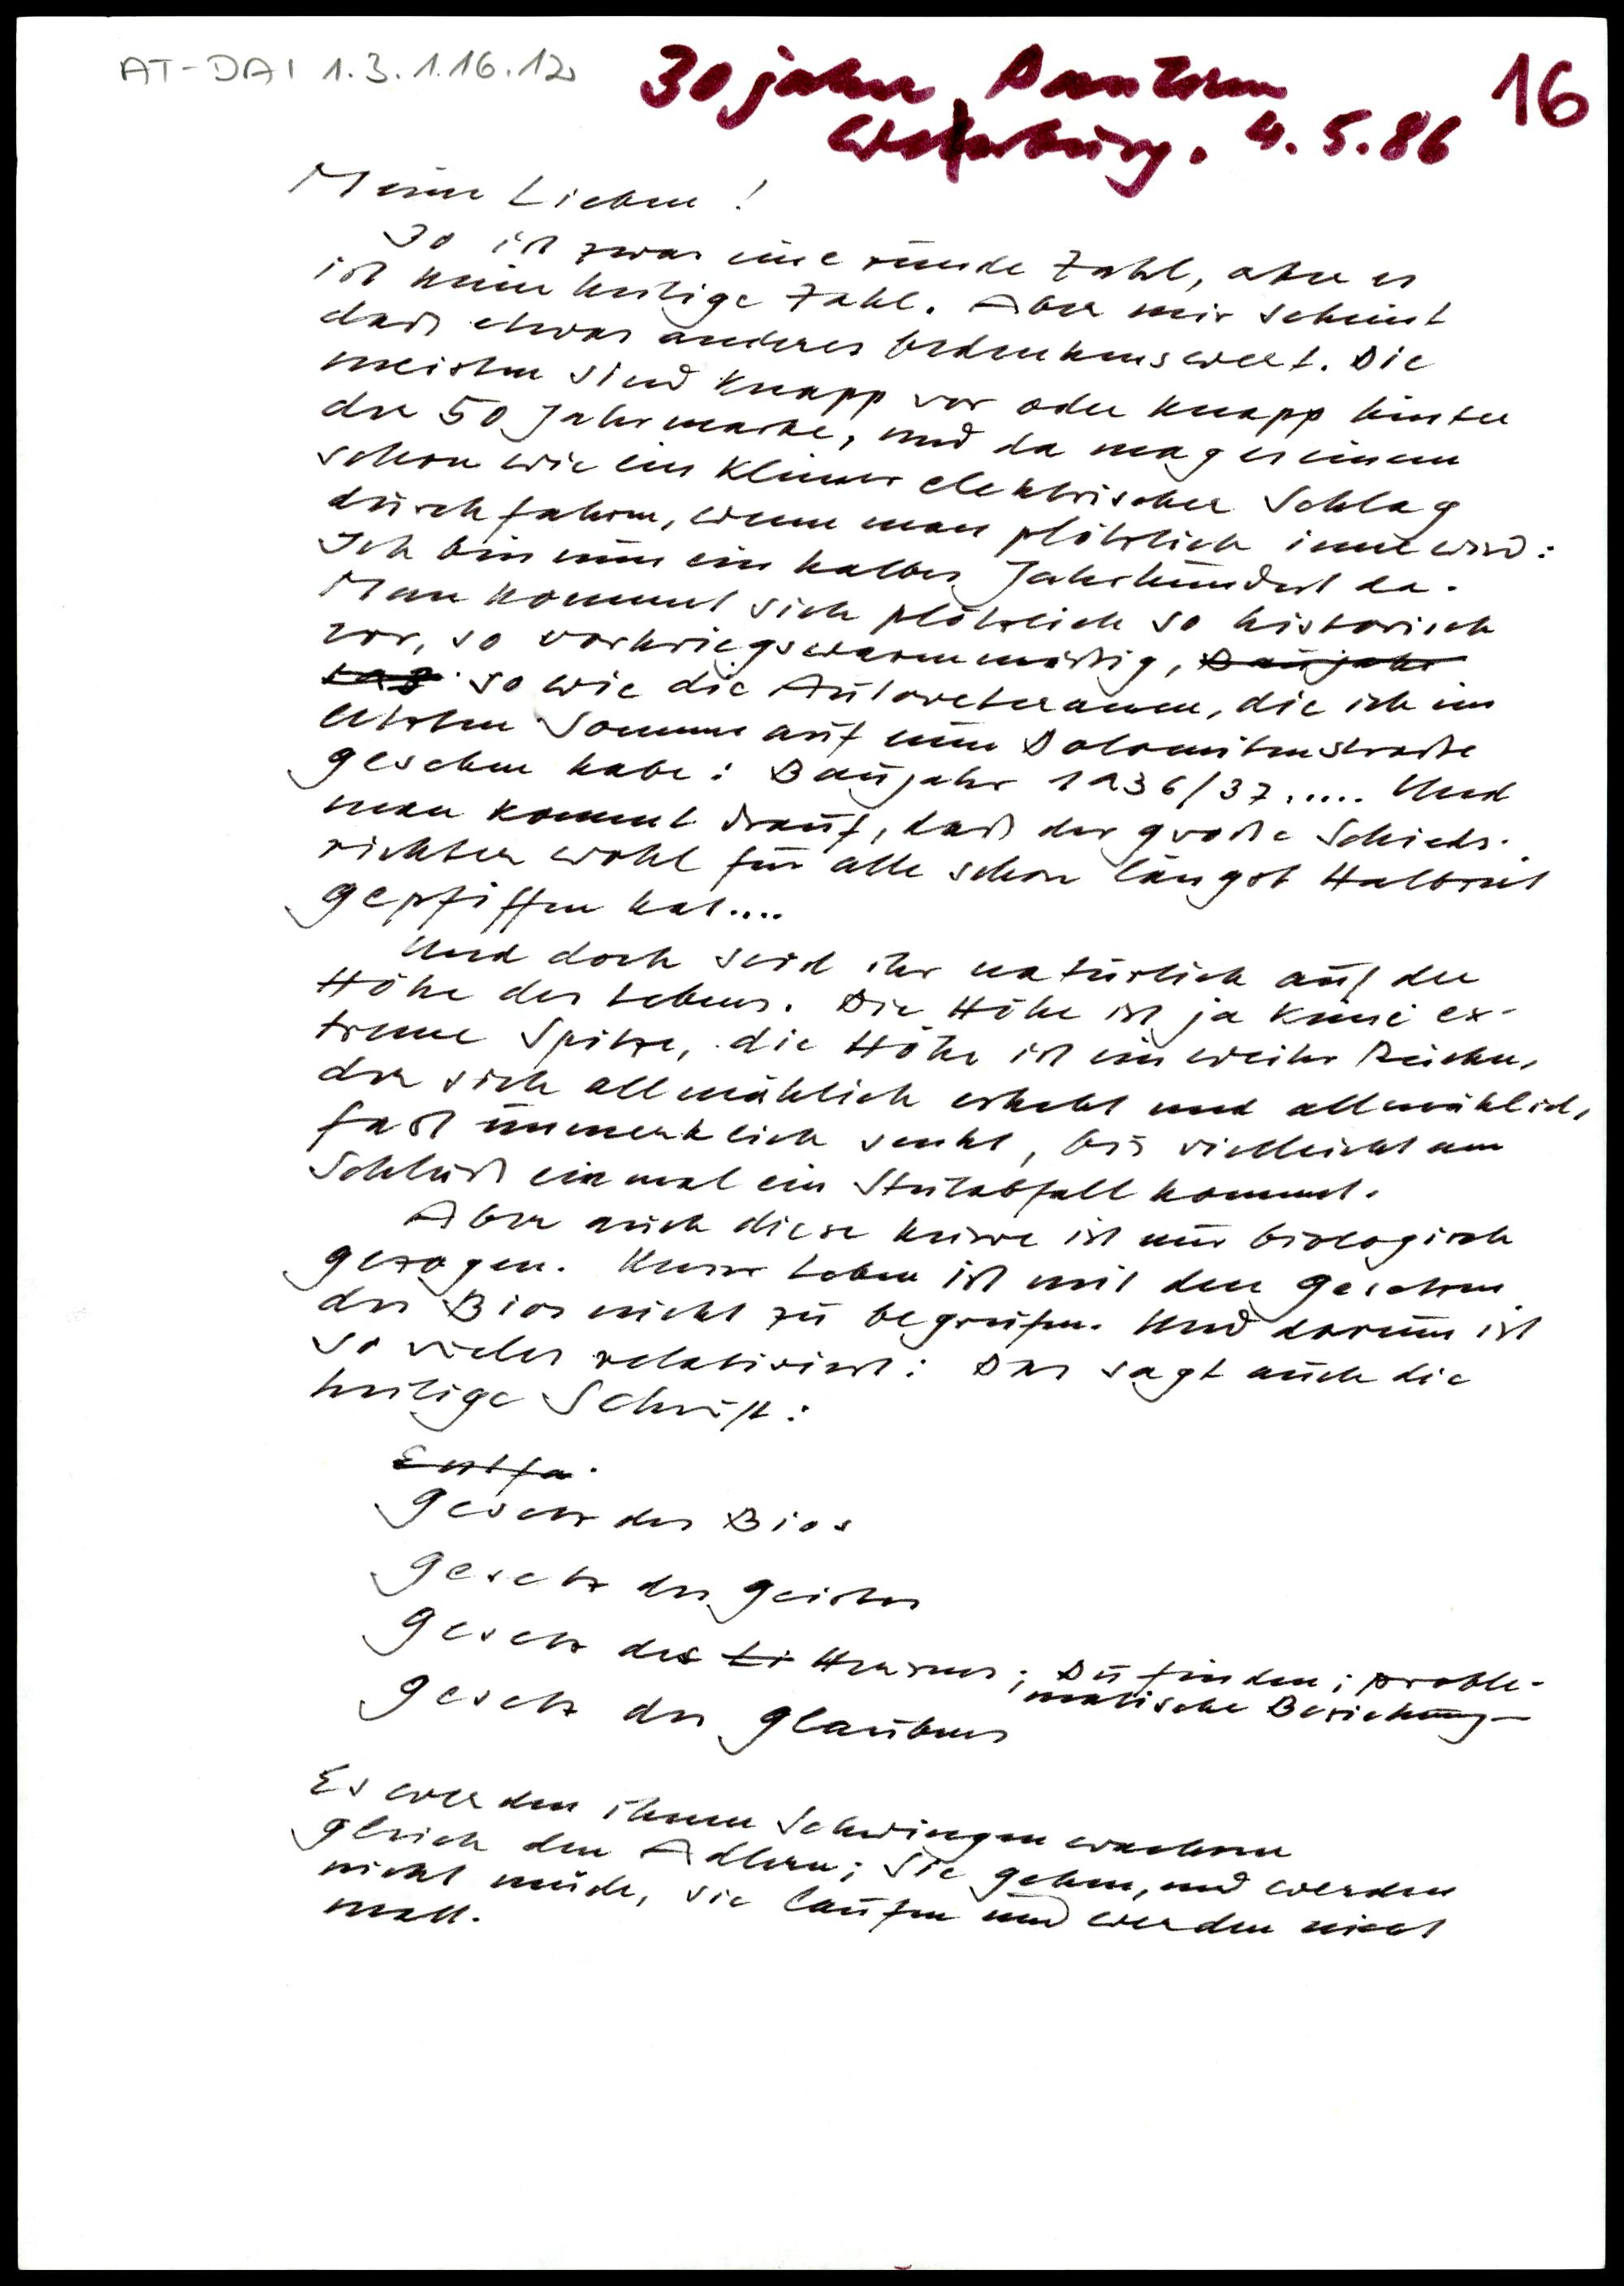 AT-DAI 1.3.1.16.12
16
30 jahre
Weiherburg. 4.5.86
Meine Lieben!
30 ist zwar eine runde Zahl, aber es
ist keine heilige Zahl. Aber mir scheint
daß etwas anderes bedenkenswert. Die
meisten sind knapp vor oder knapp hinter
der 50 Jahrmarke, und da mag es einem
schon wie ein kleiner elektrischer Schlag
durchfahren, wenn man plötzlich inne wird:
Ich bin nun ein halbes Jahrhundert da.
Man kommt sich plötzlich so historisch
vor, so vorkriegswarenmäßig, Baujahr
so wie die Autoveteranen, die ich im
letzten Sommer auf einer Dolomitenstraße
gesehen habe: Baujahr 1936/37..... Und
man kommt drauf, daß der große Schieds-
richter wohl für alle schon längst Halbzeit
gepfiffen hat....
Und doch seid ihr natürlich auf der
Höhe des Lebens. Die Höhe ist ja keine ex-
treme Spitze, die Höhe ist ein weiter Rücken,
der sich allmählich erhebt und allmählich,
fast unmerklich senkt, bis vielleicht am
Schluß einmal ein Steilabfall kommt.
Aber auch diese Kurve ist nur biologisch
gezogen. Unser Leben ist mit den Gesetzen
des Bios nicht zu begreifen. Und darum ist
so vieles relativiert: Das sagt auch die
heilige Schrift:
Entfa
Gesetz des Bios
Gesetz des Geistes
Gesetz des Li Herzens; Du finden; proble-
matische Beziehung
Gesetz des Glaubens
Es werden ihnen Schwingen wachsen
gleich den Adlern; sie gehen, und werden
nicht müde, sie laufen und werden nicht
matt.